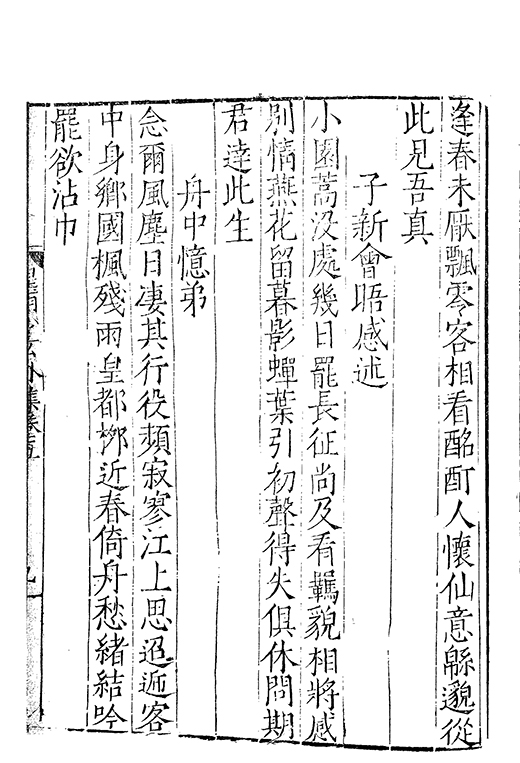 逢春未厭飄零客相看酩酊人懷仙意緜邈從
此見吾真
子新會晤感述
小園蒿没處幾日罷長征尚及看羈貌相將感
別情燕花留暮影蟬葉引初聲得失俱休問期
君達此生
舟中憶弟
念爾風塵日凄其行役頻寂寥江上思迢遞客
中身鄉國楓殘雨皇都柳近春倚舟愁緒結吟
罷欲沾巾
外集卷
九